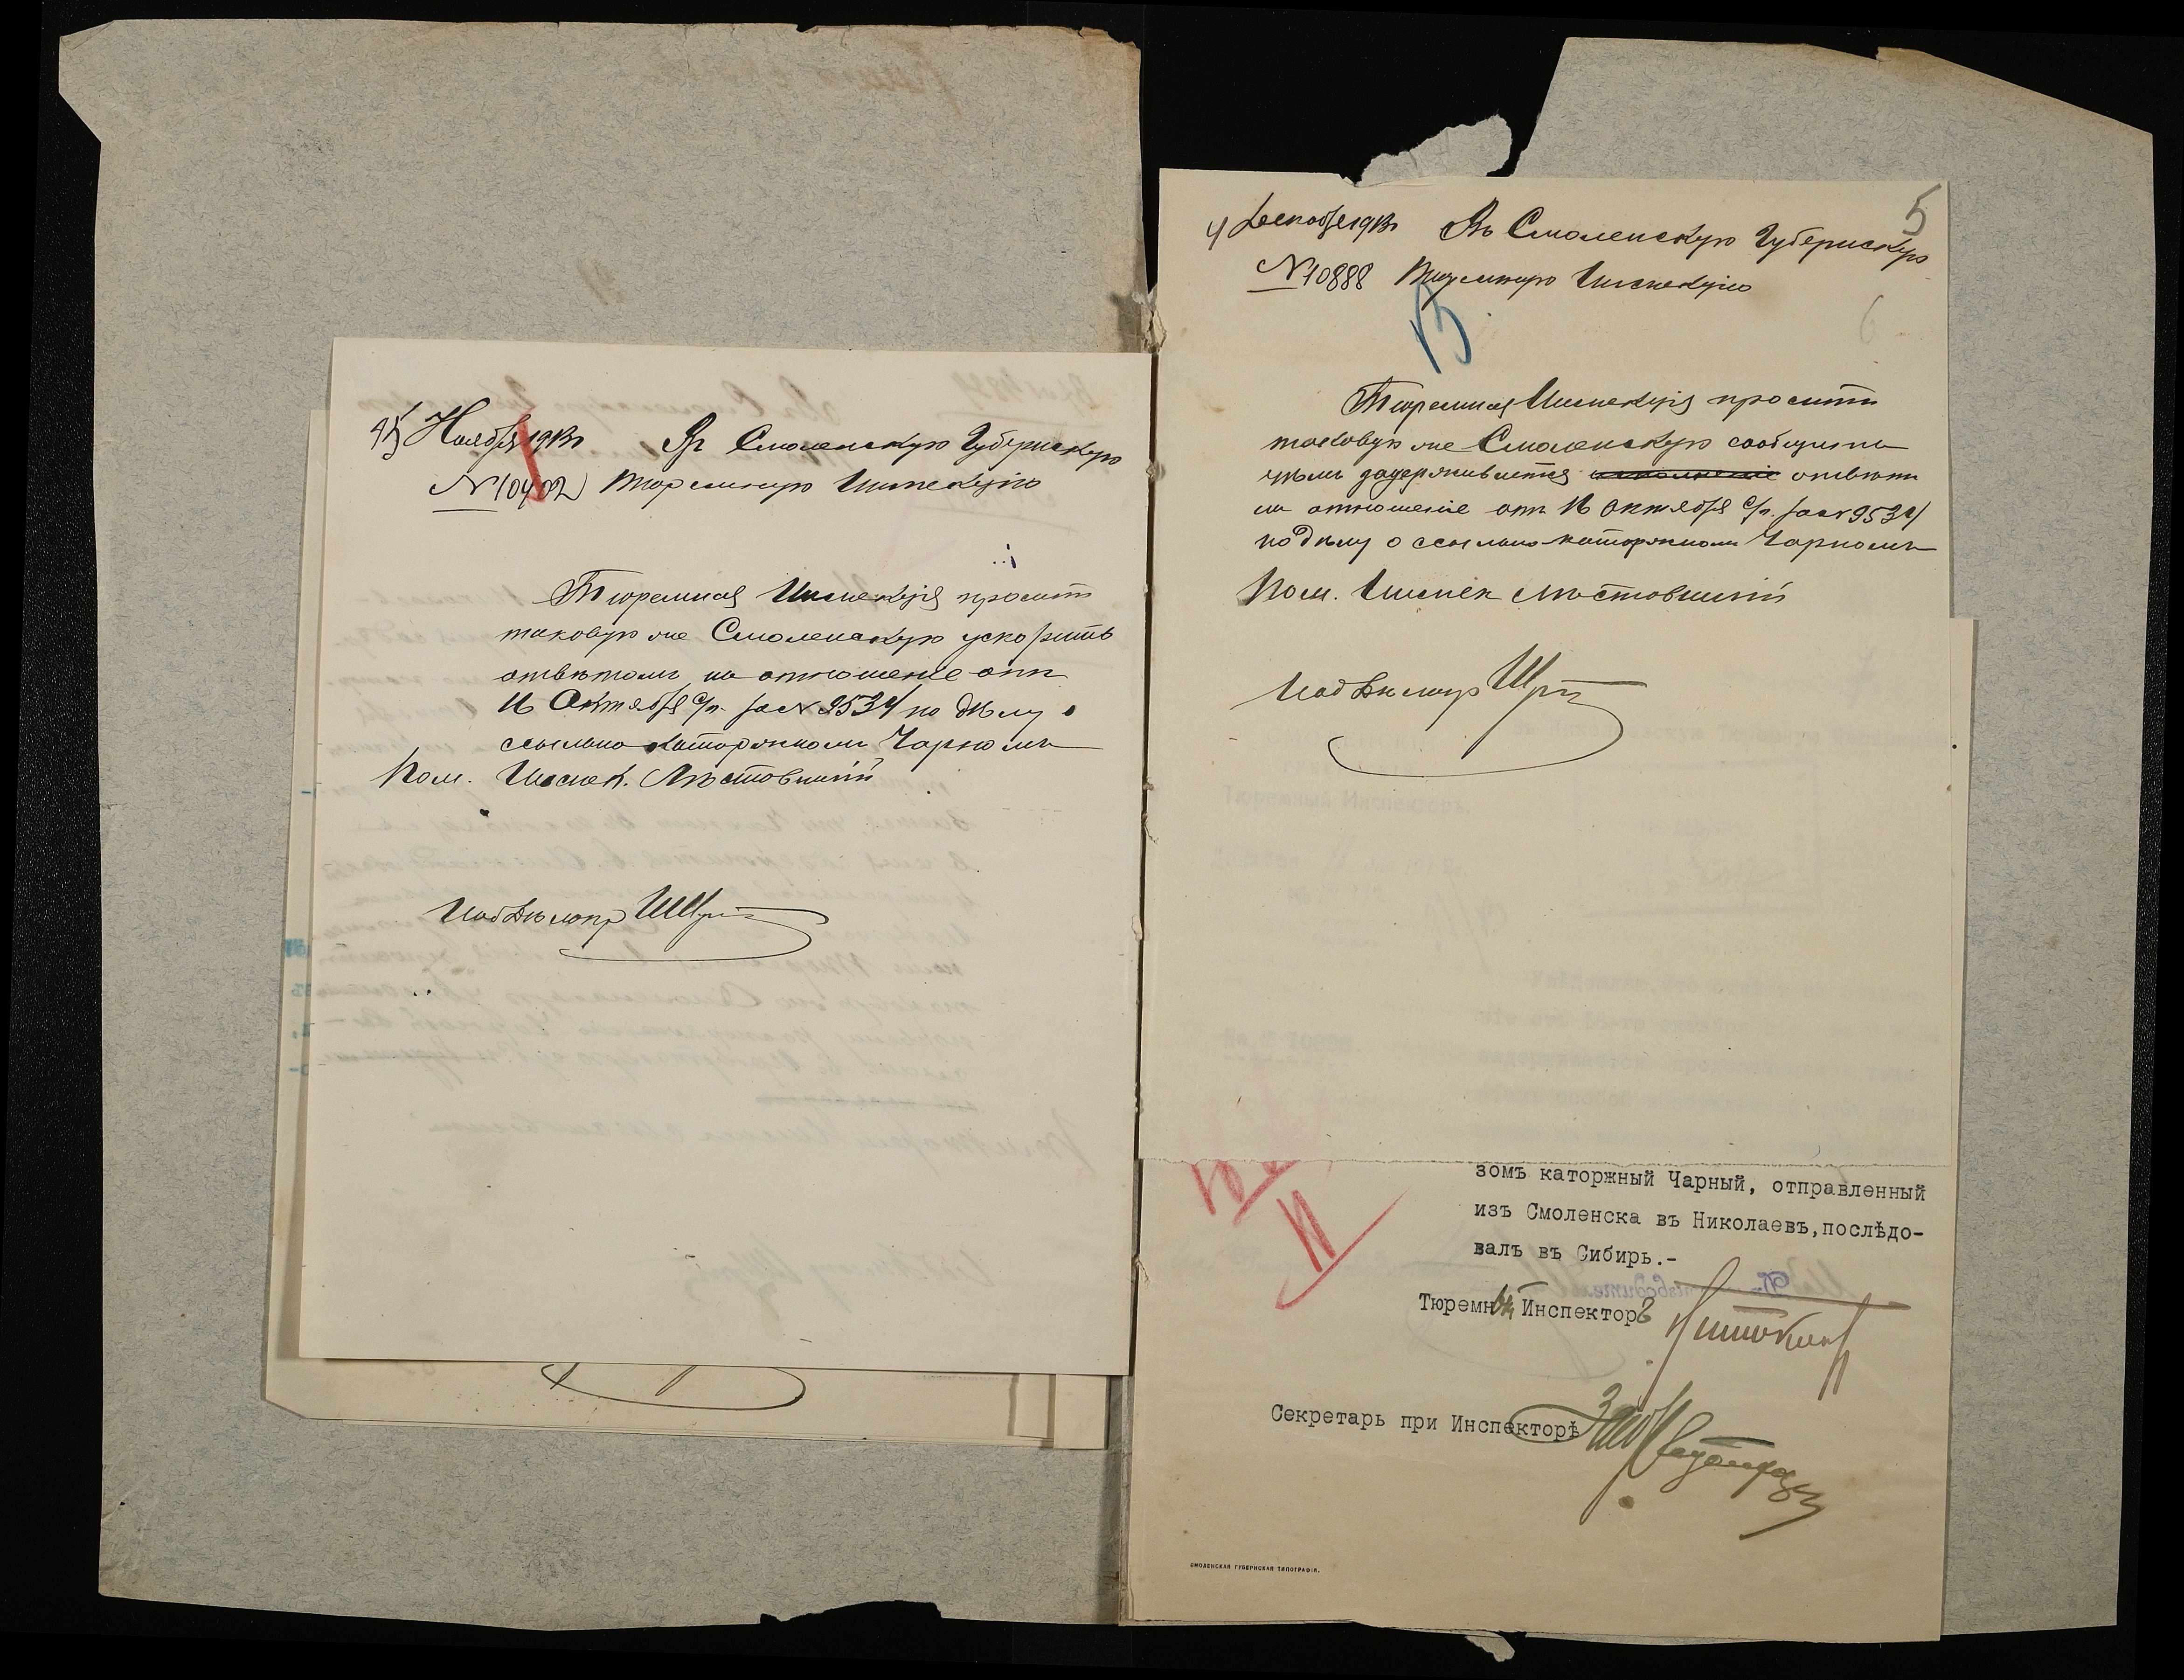 15 Ноября 1913 г. Въ Смоленскую Губернскую
№ 10402 Тюремную Инспекцію
Тюремная Инспекція проситъ
таковую же Смоленскую ускорить
отвѣтомъ на отношеніе отъ
16 Октября с/г. за № 9534 по дѣлу о
ссыльно-каторжномъ Чарномъ
Пом. Инспек. Мѣстовшій
5
4 Декабря 1913 г. Въ Смоленскую Губернскую
№ 10888 Тюремную Инспекцію
Тюремная Инспекція проситъ
таковую же Смоленскую сообщить
чѣмъ задерживается исполненіе отвѣтъ
на отношеніе отъ 16 Октября с/г. за № 9534
по дѣлу о ссыльно-каторжномъ Чарномъ
Пом. Инспек Мѣстовшій
зомъ каторжный Чарный, отправленный
изъ Смоленска въ Николаевъ, послѣдо-
валъ въ Сибирь.-
Тюремный Инспекторъ
Секретарь при Инспекторѣ
СМОЛЕНСКАЯ ГУБЕРНСКАЯ ТИПОГРАФІЯ.